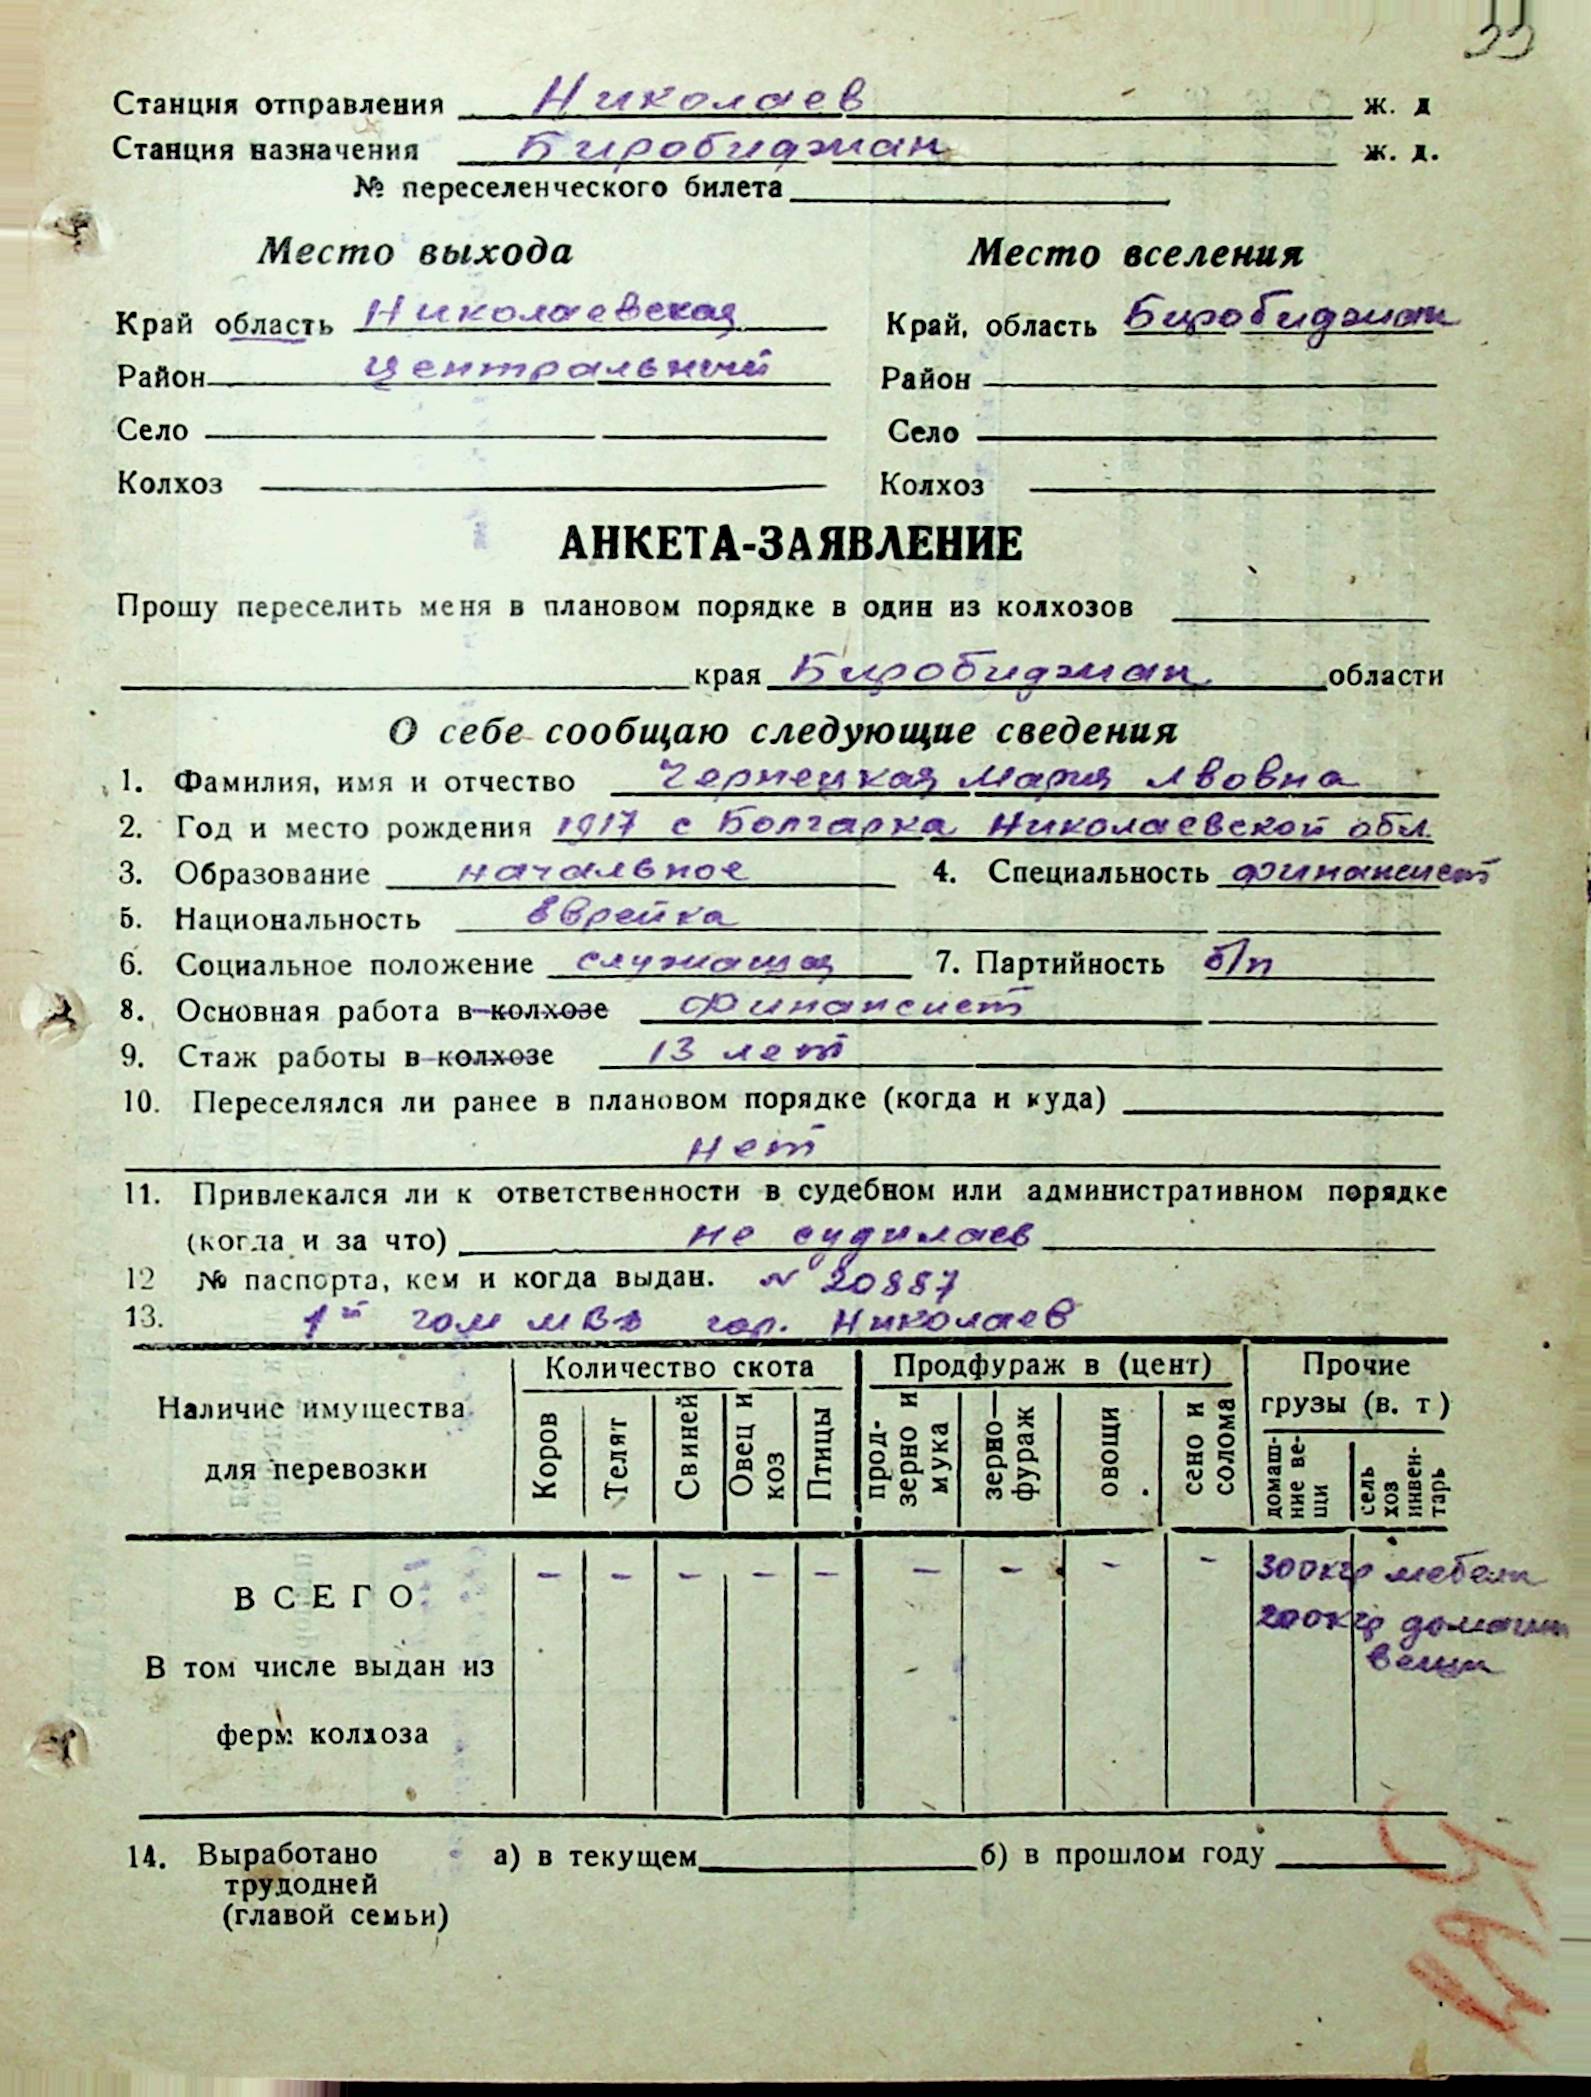 33
Станция отправления Николаев ж. д
Станция назначения Биробиджан ж. д.
№ переселенческого билета
Место выхода Место вселения
Край область Николаевская Край, область Биробиджан
Район Центральный Район
Село Село
Колхоз Колхоз
АНКЕТА-ЗАЯВЛЕНИЕ
Прошу переселить меня в плановом порядке в один из колхозов
края Биробиджан области
О себе сообщаю следующие сведения
1. Фамилия, имя и отчество Чернецкая Мария Львовна
2. Год и место рождения 1917 с Болгарка Николаевской обл.
3. Образование начальное 4. Специальность финансист
5. Национальность еврейка
6. Социальное положение служащая 7. Партийность б/п
8. Основная работа в колхозе финансист
9. Стаж работы в колхозе 13 лет
10. Переселялся ли ранее в плановом порядке (когда и куда)
нет
11. Привлекался ли к ответственности в судебном или административном порядке
(когда и за что) не судилась
12 № паспорта, кем и когда выдан. № 20887
13. 1й гом МВД гор. Николаев
Наличие имущества для перевозки
Количество скота Продфураж в (цент) Прочие грузы (в. т)
Коров Телят Свиней Овец и коз Птицы прод-зерно и мука зерно—фураж овощи сено и солома домаш-ние ве-щи сель хоз инвен-тарь
ВСЕГО - - - - - - - - - 300кгр мебели
200кгр домашн
вещи
В том числе выдан из
ферм колхоза
14. Выработано а) в текущем б) в прошлом году
трудодней
(главой семьи)